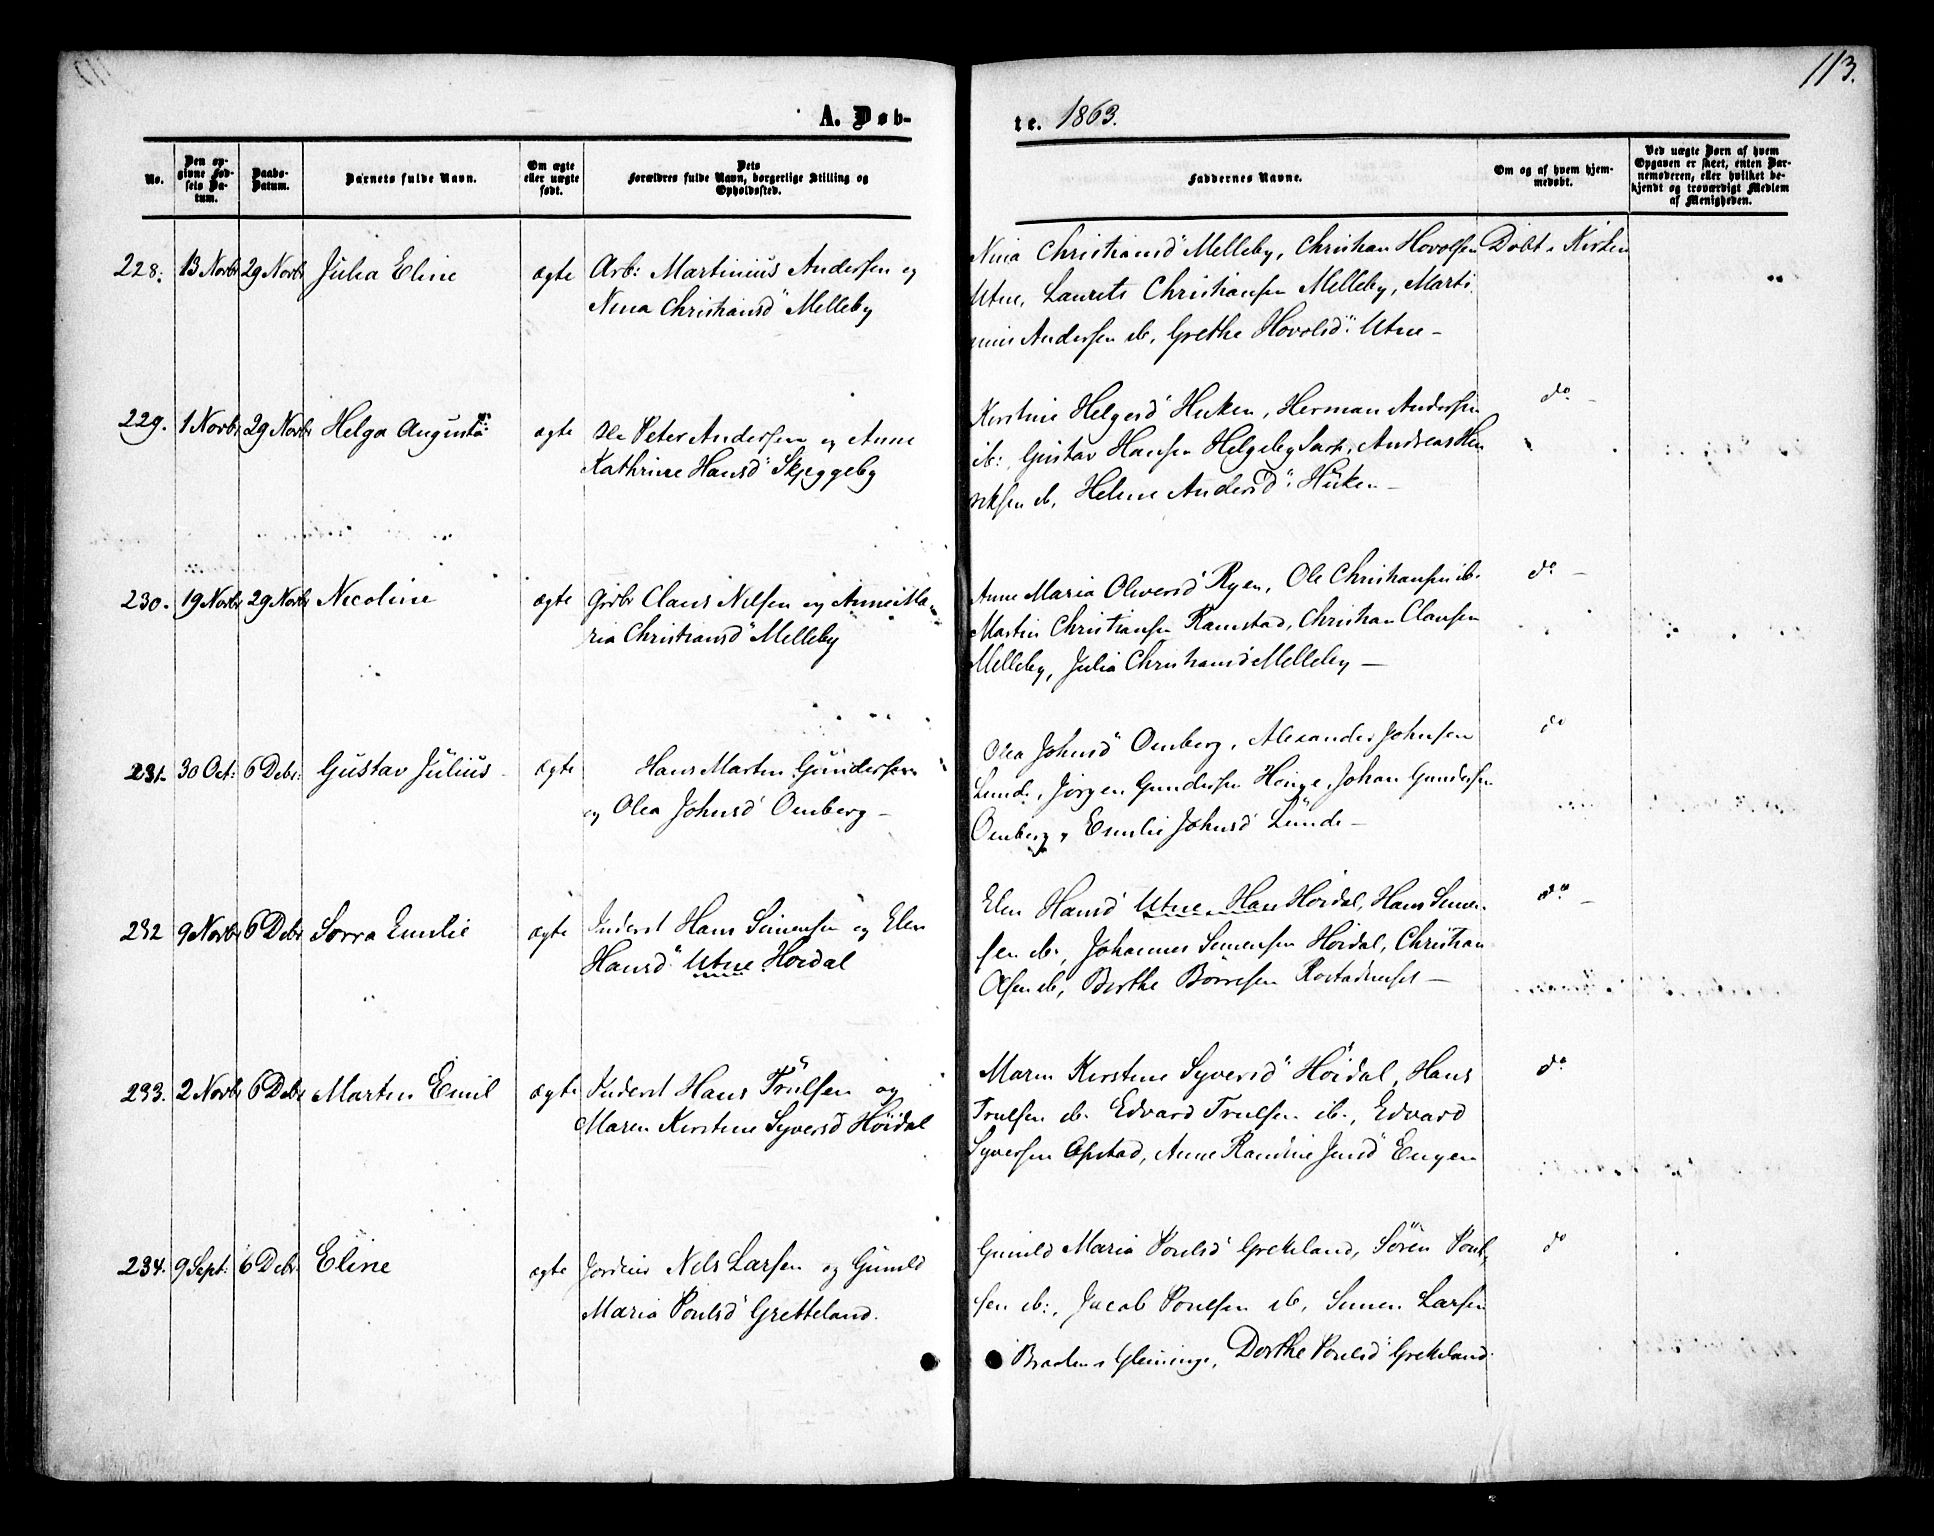 113.
A. Døb-
te. 1863.
No.
Den op-
givne Fød-
sels Da-
tum.
Daabs-
Datum.
Barnets fulde Navn.
Om ægte
eller uægte
født.
Dets
Forældres fulde Navn, borgerlige Stilling og
Opholdssted.
Faddernes Navne.
Om og af hvem hjem-
medøbt.
Ved uægte Børn af hvem
Opgaven er skeet, enten Bar-
nemoderen, eller hvilket be-
kjendt og troværdigt Medlem
af Menigheden.
228. 13 Novbr 29 Novbr Julia Eline ægte Arb: Martinius Andersen og
Nina Christiansd Melleby
Nina Christiansd Melleby, Christian Hovolsen
Utne, Laurits Christiansen Melleby, Marti
nius Andersen ib, Grethe Hovolsd Utne –
Døbt i Kirken
229. 1 Novbr 29 Novbr Helga Augusta ægte Peter Andersen og Anne
Kathrine Hansd Skjeggeby
Kirstine Helgesd Huken, Herman Andersen
ib:, Gustav Hansen Helgeby Sarp, Andreas Hen
riksen ib, Helene Andersd Huken –
do –
230. 19 Novbr 29 Novbr Nicoline ægte Grdbr Claus Nilsen og Anne Ma
ria Christiansd Melleby
Anne Maria Oliversd Ryen, Ole Christiansen ib.
Martin Christiansen Ramstad, Christian Clausen
Melleby, Julia Christiansd Melleby –
do –
231. 30 Oct: 6 Debr: Gustav Julius ægte Hans Martin Gundersen
og Olea Johnsd Oenberg –
Olea Johnsd Oenberg, Alexander Johnsen
Lund, Jørgen Gundersen Hauge, Johan Gundersen
Oenberg, Emilie Johnsd Lunde –
do
232 9 Novbr 6 Debr Sørra Emilie ægte Inderst Hans Simensen og Elen
Hansd Utne Høidal
Elen Hansd Utne Han Høidal, Hans Simen-
sen ib, Johannes Simensen Høidal, Christian
Olsen ib, Berthe Børresen –
do –
233. 2 Novbr 6 Debr Martin Emil ægte Inderst Hans Trulsen og
Maren Kirstine Syversd Høidal
Maren Kirstine Syversd Høidal, Hans
Trulsen ib. Edvard Trulsen ib., Edvard
Syversen Opstad, Anne Randine Jensd Engen
do
234. 9 Sept: 6 Debr Eline ægte Nils Larsen og Gunild
Maria Poulsd Gretteland.
Gunild Maria Poulsd Grekeland, Søren Poul
sen ib:, Jacob Poulsen ib, Simen Larsen
Braaten Gleininge, Dorthe Poulsd Grekeland.
do